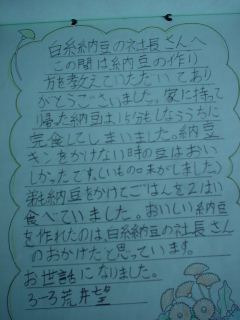 白糸納豆の社長さんへ
この間は納豆の作り
方を教えていただいてあり
がとうございました。家に持って
帰った納豆は1分もしないうちに
完食してしまいました。納豆
キンをかけない時の豆はおい
しかったです。(いもの味がしました)
弟も納豆をかけてごはんを2はい
食べていました。おいしい納豆
を作れたのは、白糸納豆の社長さん
のおかげだと思っています。
お世話になりました。
3-3 荒井望